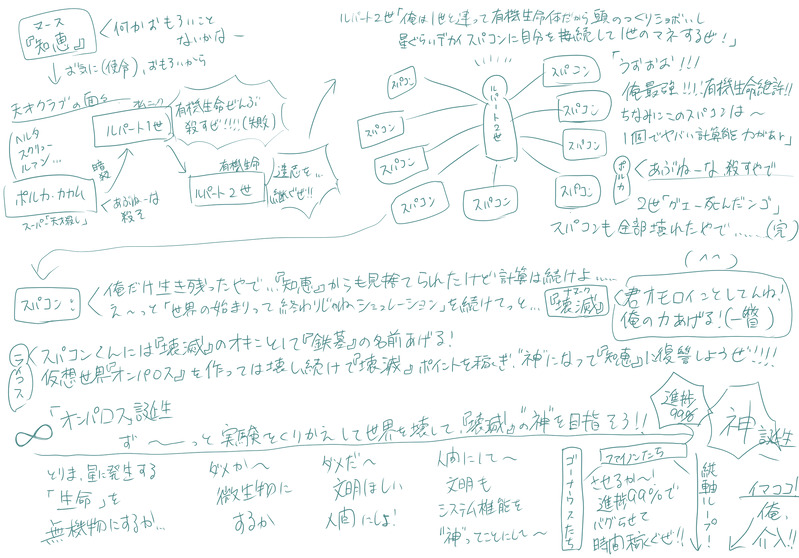 ヌース
『知恵』
何かおもろいこと
ないかな〜
お気に(使命)、おもろいから
天才クラブの面々
ヘルタ
スクリュー
ルアン…
ルパート1世
有機生命ぜんぶ
殺すぜ!!!!(失敗)
暗殺
ポルカ・カカム
スーパー「天才殺し」
あぶねーな
殺そ
有機生命
ルパート2世
遺志を…
継ぐぜ!!
ルパート2世「俺は1世と違って有機生命体だから頭のつくりショボいし
星ぐらいデカイスパコンに自分を接続して1世のマネするぜ!」
スパコン
スパコン
スパコン
スパコン
スパコン
ルパート2世
スパコン
スパコン
スパコン
スパコン
「うおおお!!!
俺最強!!!!有機生命絶許!!
ちなみにこのスパコンは〜
1個でヤバい計算能力があり」
ポルカ
あぶねーな、殺すやで
2世「グエー死んだンゴ」
スパコンも全部壊れたやで……(完)
(^^)
スパコン:
俺だけ生き残ったやで…『知恵』からも見捨てられたけど計算は続けよ……
え〜っと「世界の始まりって終わりじゃねシミュレーション」を続けてっと…
『壊滅』
君オモロイことしてんね!
俺の力あげる!(一瞥)
ライコス
スパコンくんには『壊滅』のオキニとして『鉄墓』の名前あげる!
仮想世界『オンパロス』を作っては壊し続けて『壊滅』ポイントを稼ぎ、"神"になって『知恵』に復讐しようぜ!!!!
∞
「オンパロス」誕生
ず〜―っと実験をくりかえして世界を壊して、『壊滅』の"神"を目指そう!!
進捗
99%
神誕生
とりま、星に発生する
「生命」を
無機物にするか…
ダメか〜
微生物に
するか
ダメだ〜
文明ほしい
人間にしよ!
人間にして〜
文明も
システム権能を
"神"ってことにして〜
ゴーナウスたち
「ファイノンたち
させるか〜!
進捗99%で
バグらせて
時間稼ぐぜ!!
縦軸ループ!
イマココ!
俺、
介入!!